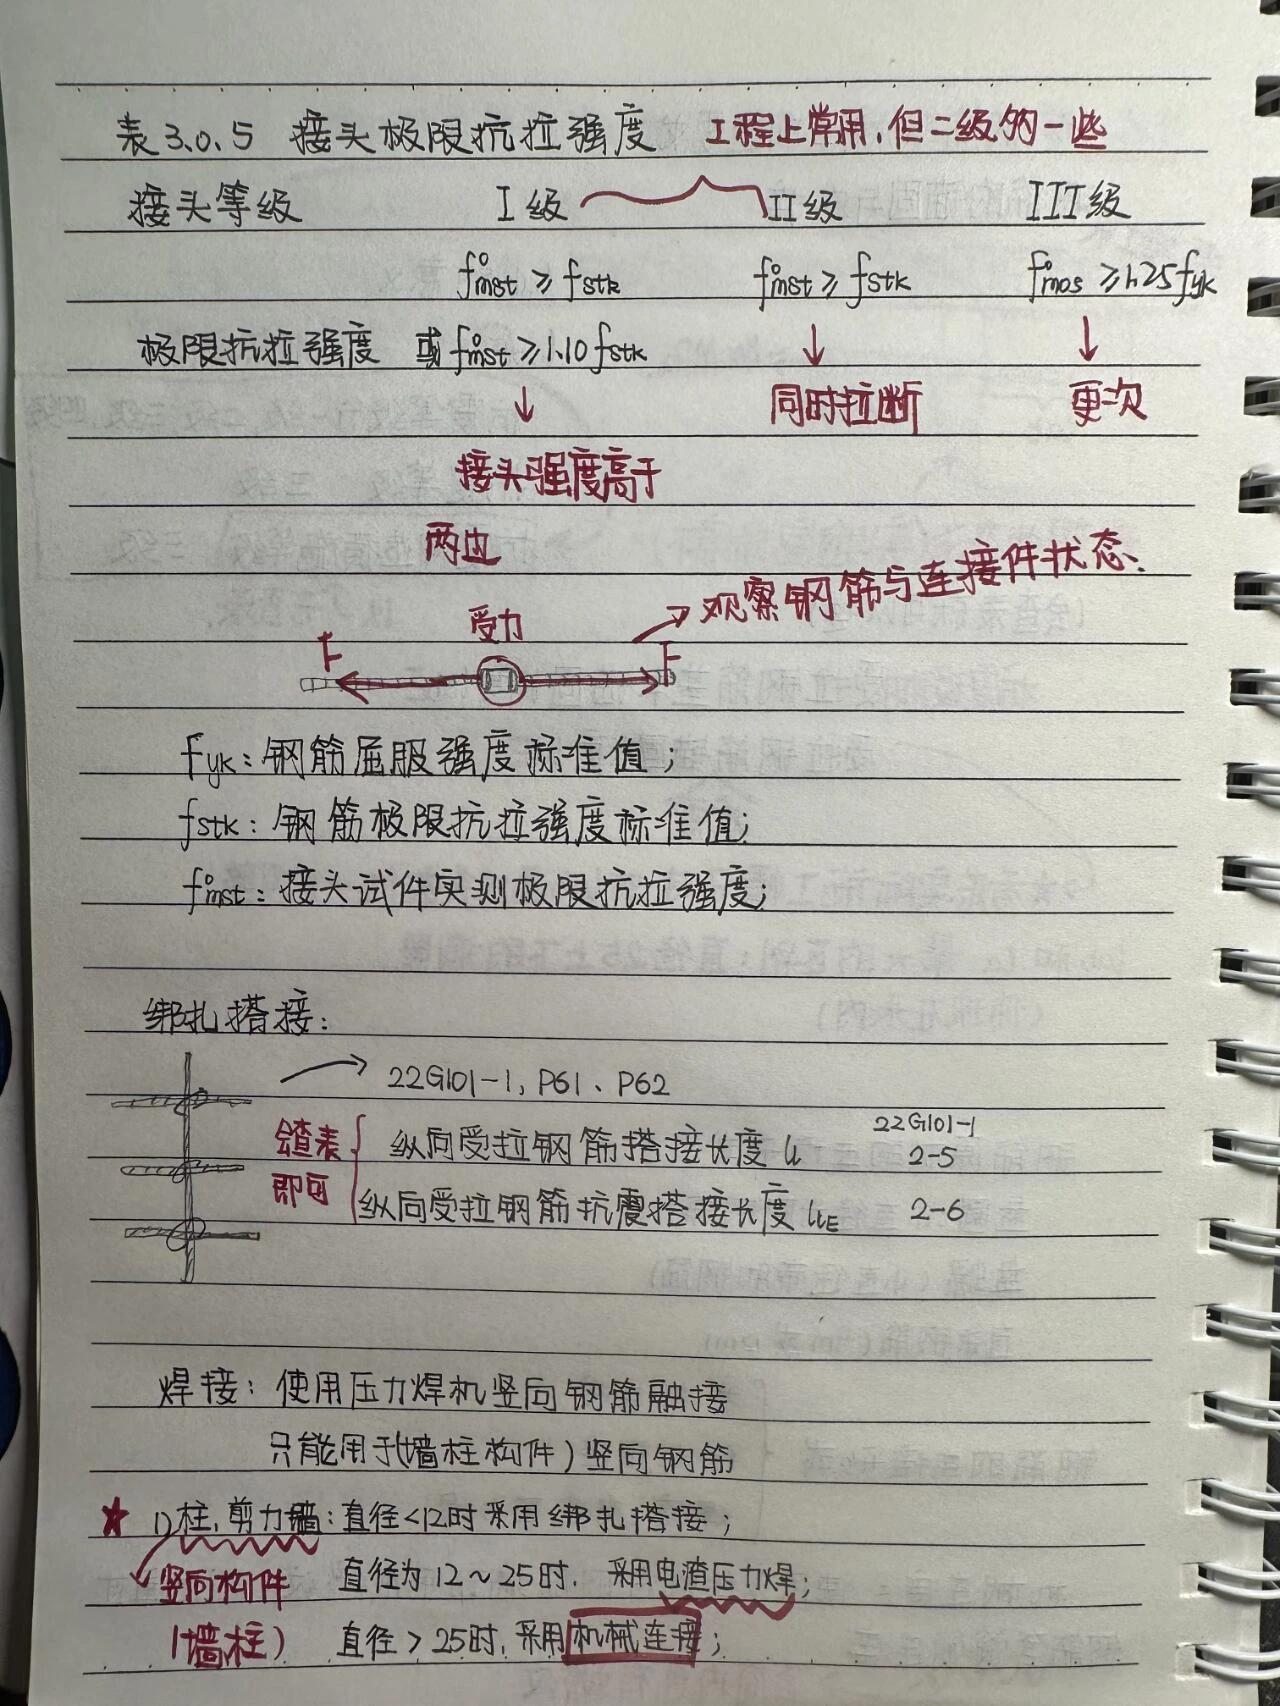 表3.0.5 接头极限抗拉强度 工程上常用,但二级的一些
接头等级 I级 II级 III级
f°mst ≥ fstk f°mst ≥ fstk f°mos ≥ 1.25fyk
极限抗拉强度 或f°mst ≥ 1.10fstk
同时拉断 更次
接头强度高于
两边
观察钢筋与连接件状态.
受力
F F
fyk:钢筋屈服强度标准值;
fstk:钢筋极限抗拉强度标准值;
f°mst:接头试件实测极限抗拉强度;
绑扎搭接:
22G101-1, P61、P62
会查表 纵向受拉钢筋搭接长度 ll 22G101-1 2-5
即可 纵向受拉钢筋抗震搭接长度 llE 2-6
焊接:使用压力焊机竖向钢筋融接
只能用于(墙柱构件)竖向钢筋
★ 1)柱,剪力墙:直径<12时采用绑扎搭接;
竖向构件 直径为12~25时,采用电渣压力焊;
(墙柱) 直径>25时,采用机械连接;